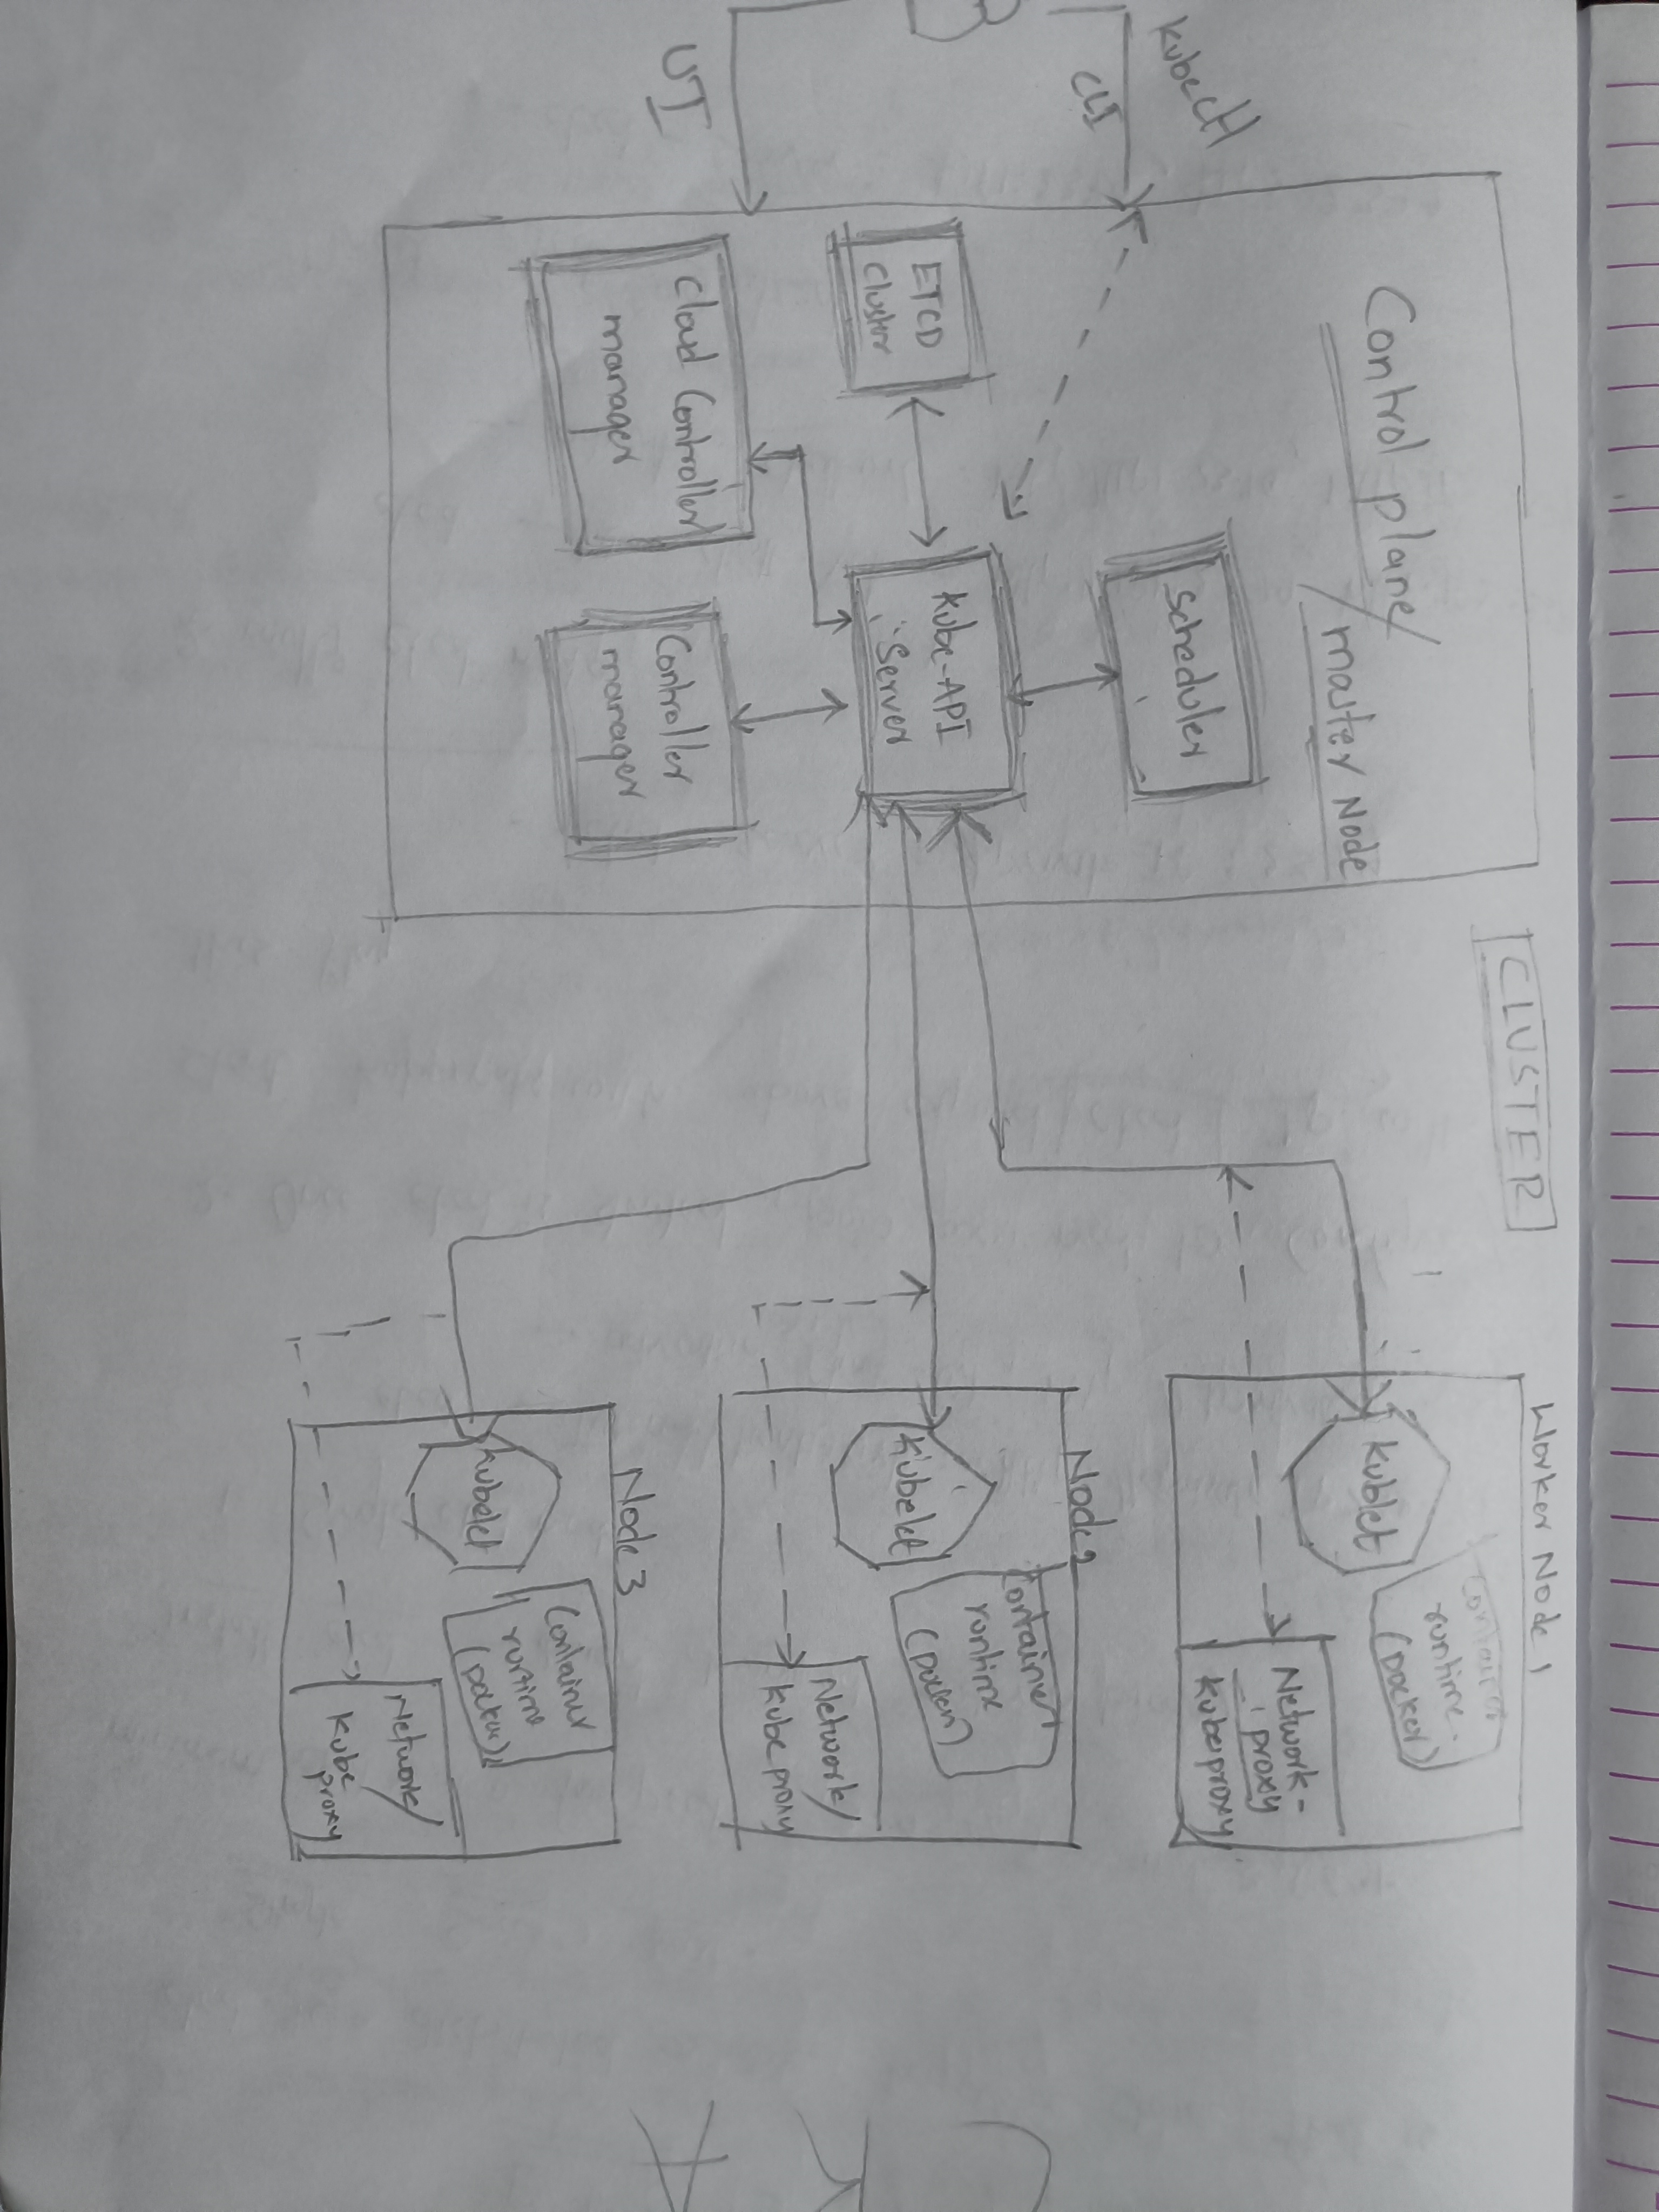 CLUSTER
Control plane/
master Node
Scheduler
kubectl
CLI
ETCD
Cluster
Kube-API
Server
UI
Cloud Controller
manager
Controller
manager
Worker Node 1
Kublet
Container
runtime.
(Docker)
Network-
proxy
Kubeproxy
Node 2
Kubelet
Container
runtime
(Docker)
Network/
Kube proxy
Node 3
Kubelet
Container
runtime
(Docker)
Network/
Kube
proxy